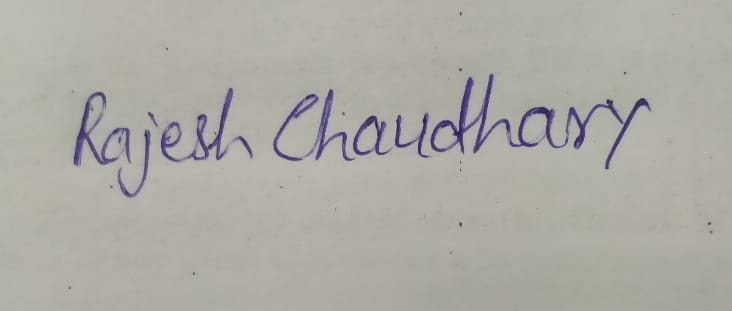 Rajesh Chaudhary